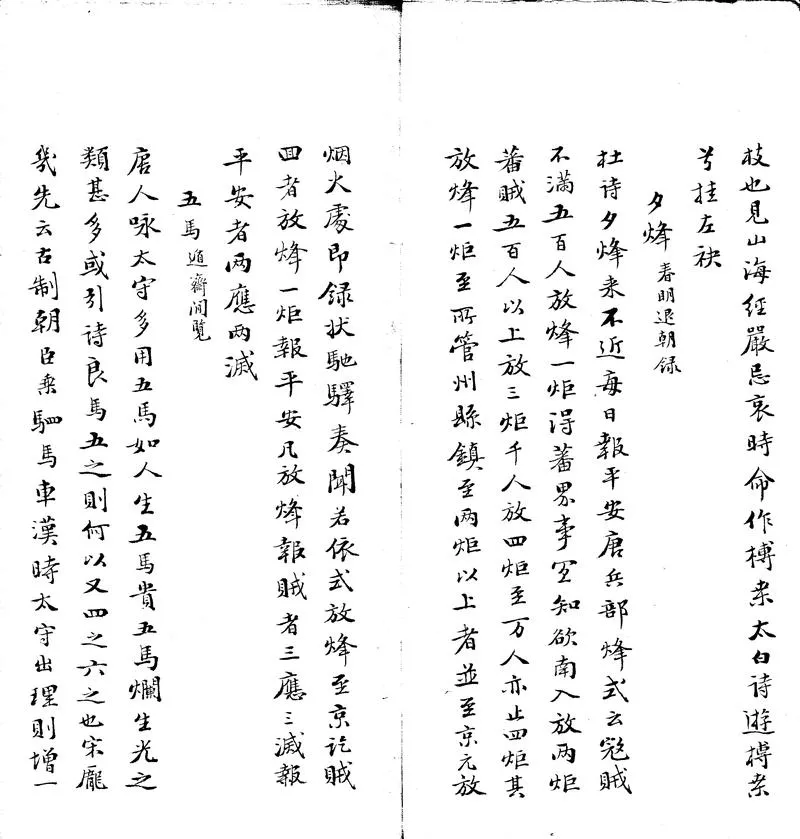 枝也見山海經嚴忌哀時命作榑桒太白詩遊榑桒
兮挂左袂
夕烽 春明退朝録
杜詩夕烽来不近每日報平安唐兵部烽式云宼賊
不滿五百人放烽一炬得蕃界事宜知欲南入放两炬
蕃賊五百人以上放三炬千人放四炬至万人亦止四炬其
放烽一炬至所管州縣鎮至两炬以上者並至京元放
烟火處即録状馳驛奏聞若依式放烽至京訖賊
囬者放烽一炬報平安凡放烽報賊者三應三滅報
平安者两應两滅
五馬 遁齋閒覧
唐人咏太守多用五馬如人生五馬貴五馬爛生光之
類甚多或引诗良馬五之則何以又四之六之也宋龐
㡬先云古制朝臣乘駟馬車漢時太守出理則增一